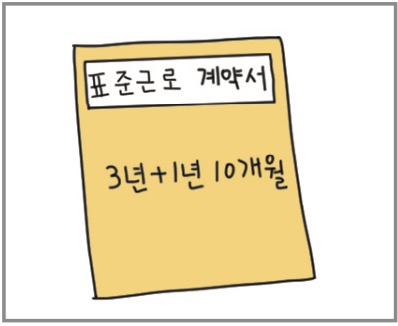 표준근로 계약서
3년+1년 10개월